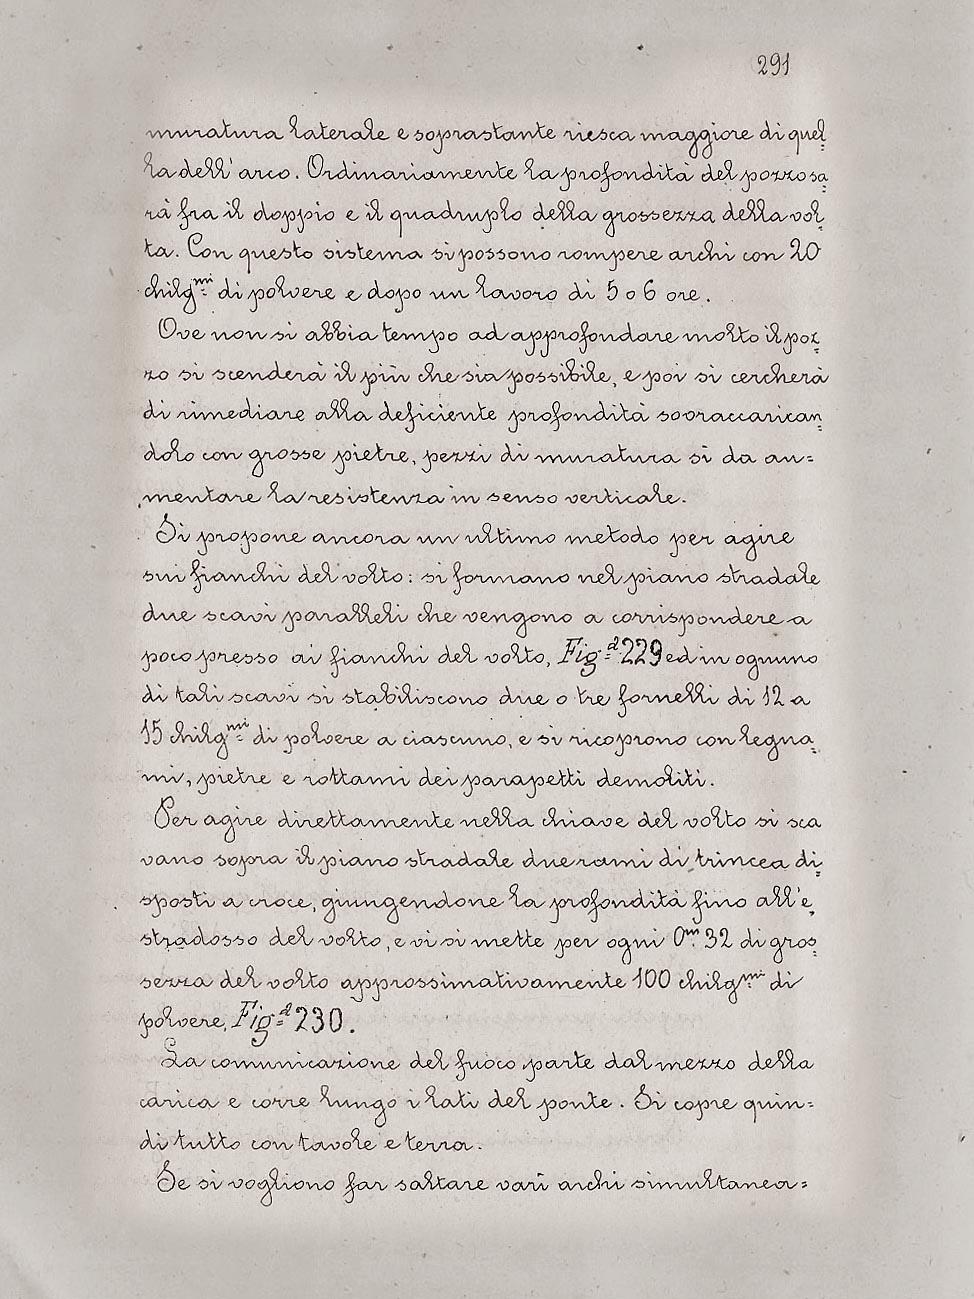 291
muratura laterale e soprastante riesca maggiore di quel=
la dell'arco. Ordinariamente la profondità del pozzo sa=
rà fra il doppio e il quadruplo della grossezza della vol=
ta. Con questo sistema si possono rompere archi con 20
chilg.mi di polvere e dopo un lavoro di 5 o 6 ore.
Ove non si abbia tempo ad approfondare molto il poz=
zo si scenderà il più che sia possibile, e poi si cercherà
di rimediare alla deficiente profondità sovraccarican=
dolo con grosse pietre, pezzi di muratura sì da au=
mentare la resistenza in senso verticale.
Si propone ancora un ultimo metodo per agire
sui fianchi del volto: si formano nel piano stradale
due scavi paralleli che vengono a corrispondere a
poco presso ai fianchi del volto, Fig.a 229 ed in ognuno
di tali scavi si stabiliscono due o tre fornelli di 12 a
15 chilg.mi di polvere a ciascuno, e si ricoprono con legna=
mi, pietre e rottami dei parapetti demoliti.
Per agire direttamente nella chiave del volto si sca
vano sopra il piano stradale due rami di trincea di=
sposti a croce, giungendone la profondità fino all'e=
stradosso del volto, e vi si mette per ogni 0m. 32 di gros=
sezza del volto approssimativamente 100 chilg.mi di
polvere, Fig.a 230.
La comunicazione del fuoco parte dal mezzo della
carica e corre lungo i lati del ponte. Si copre quin=
di tutto con tavole e terra.
Se si vogliono far saltare varî archi simultanea=